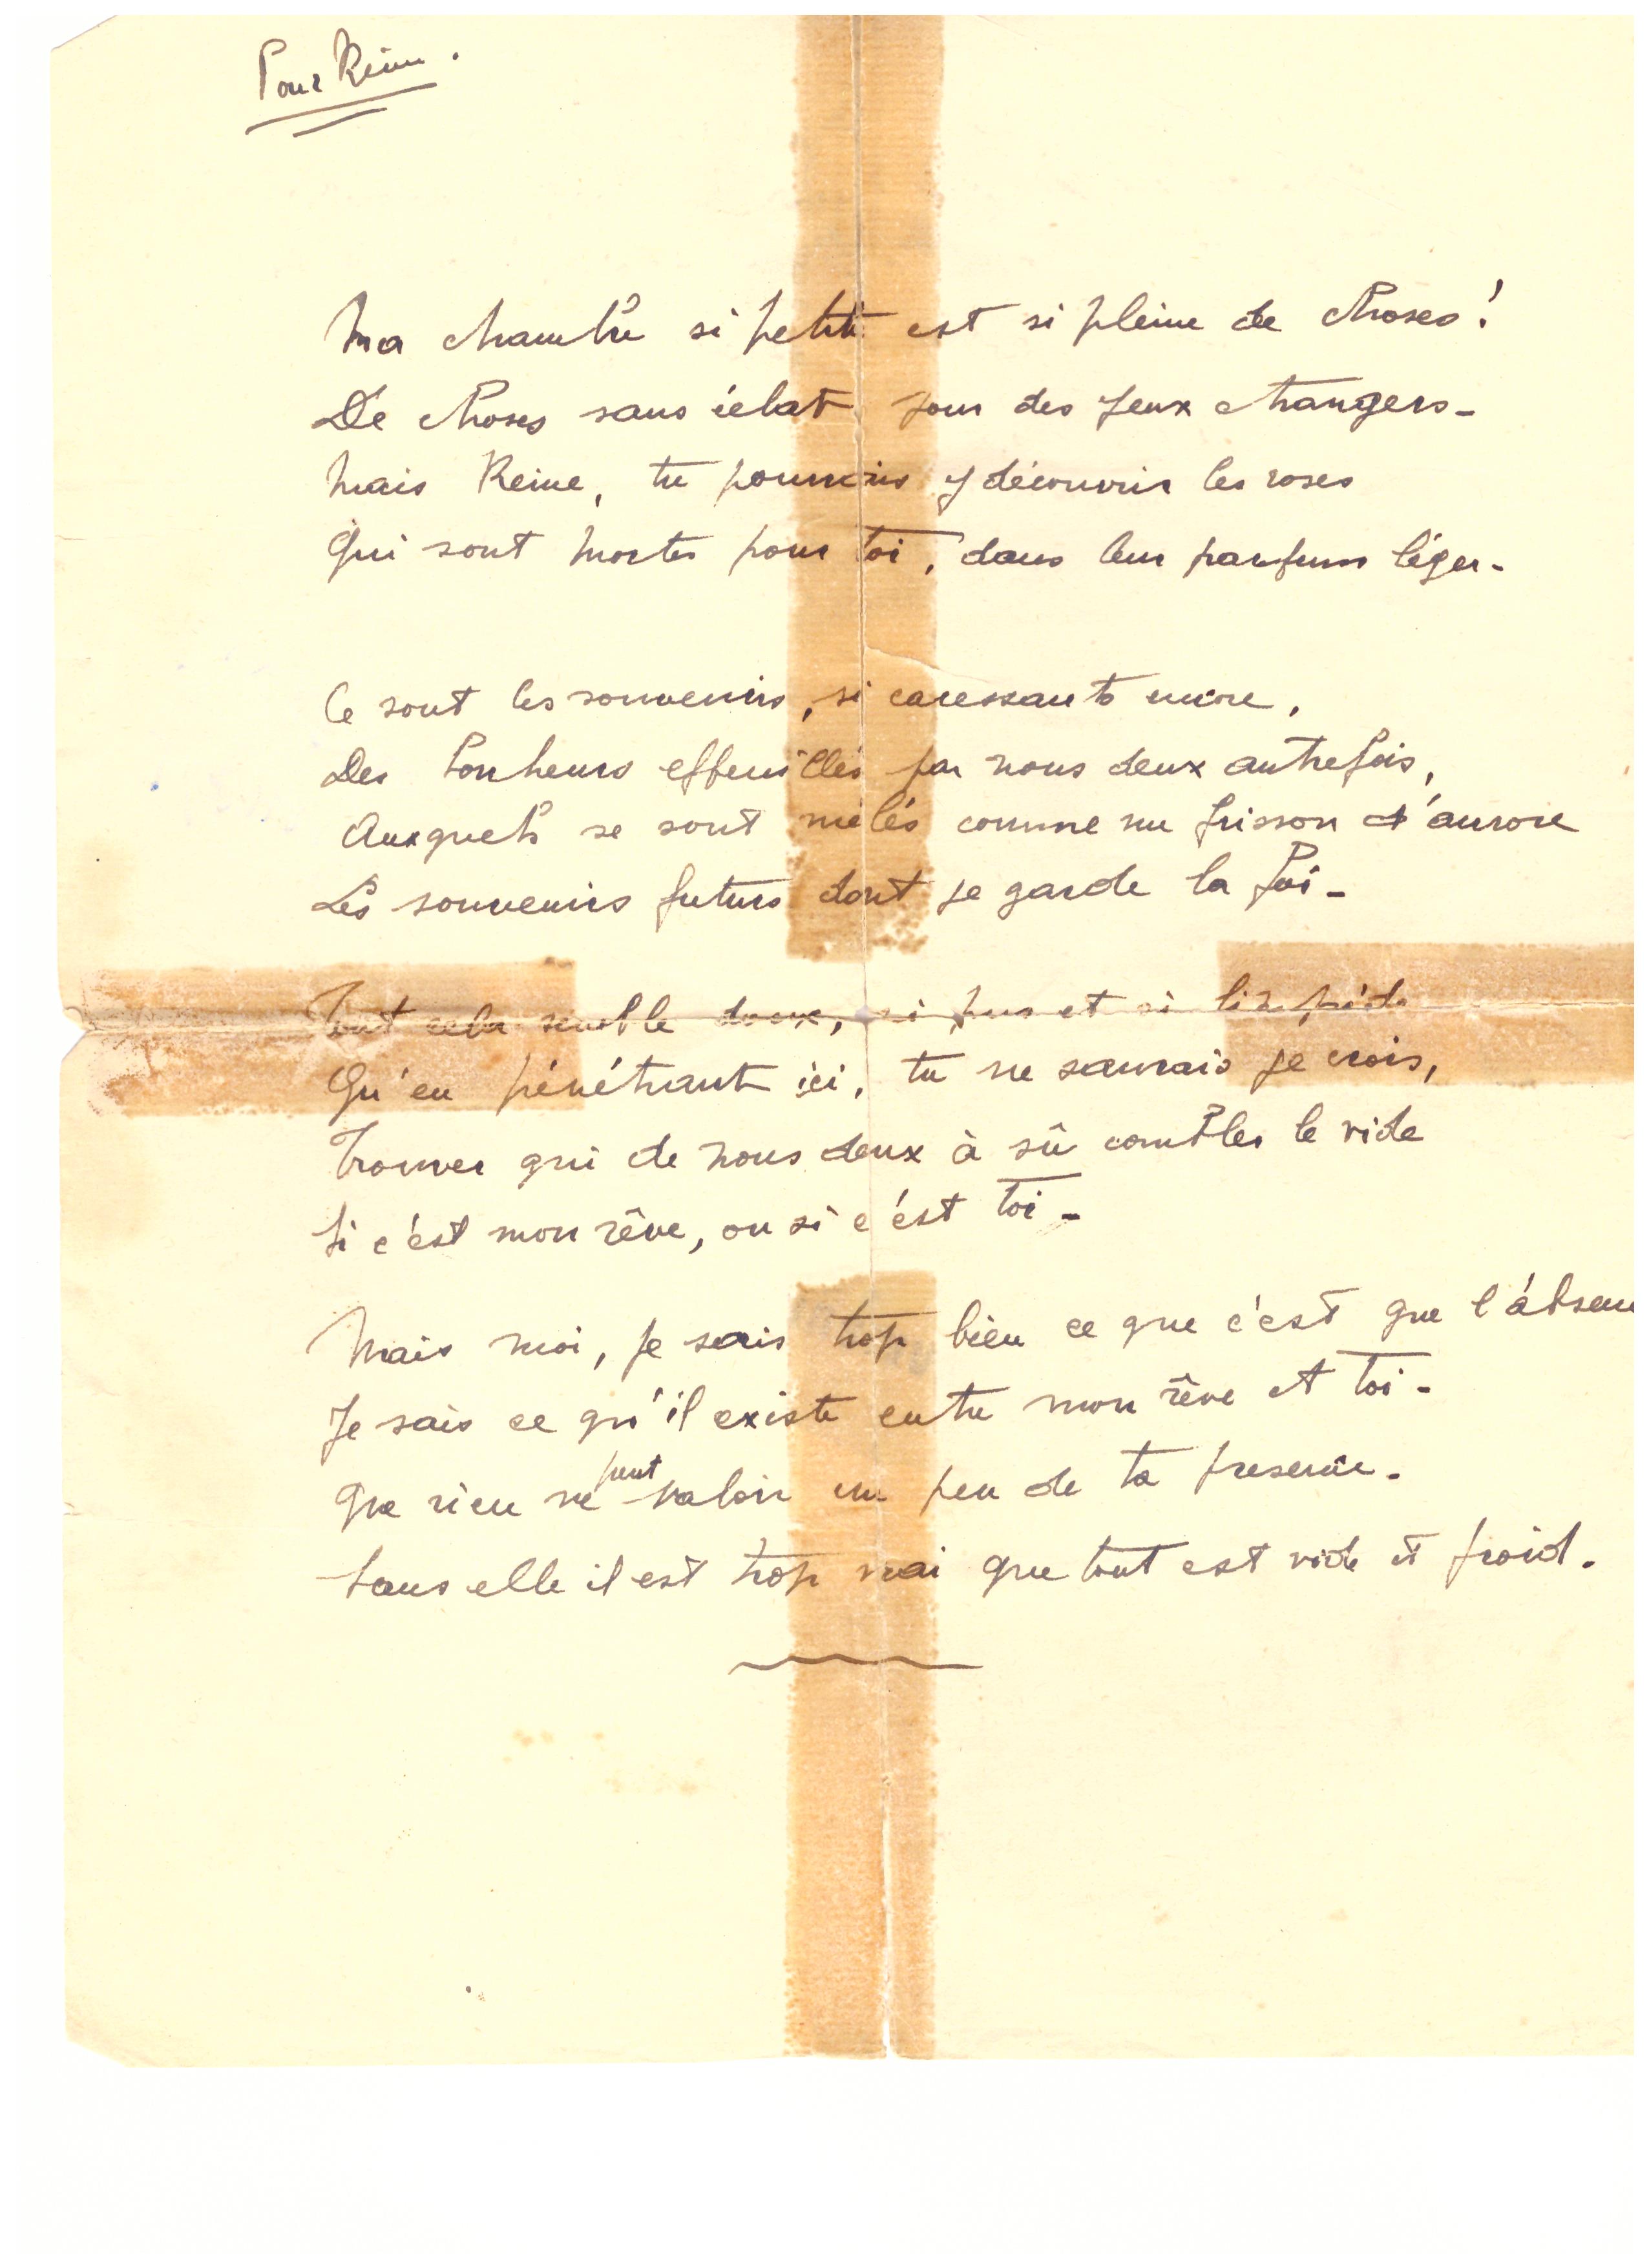 Pour Reine.
Ma chambre si petite est si pleine de choses !
De choses sans éclat pour des yeux étrangers -
Mais Reine, tu pourrais y découvrir les roses
Qui sont mortes pour toi, dans leur parfum léger -
Ce sont les souvenirs, si caressants encore,
Des bonheurs effeuillés par nous deux autrefois,
Auxquels se sont mêlés comme un frisson d'aurore
Les souvenirs futurs dont je garde la foi -
Tout cela semble doux, si pur et si limpide
Qu'en pénétrant ici, tu ne saurais je crois,
Trouver qui de nous deux à sû combler le vide
Si c'est mon rêve, ou si c'est toi -
Mais moi, je sais trop bien ce que c'est que l'absen
Je sais ce qu'il existe entre mon rêve et toi -
Que rien ne peut valoir un peu de ta presence -
Sans elle il est trop vrai que tout est vide et froid -